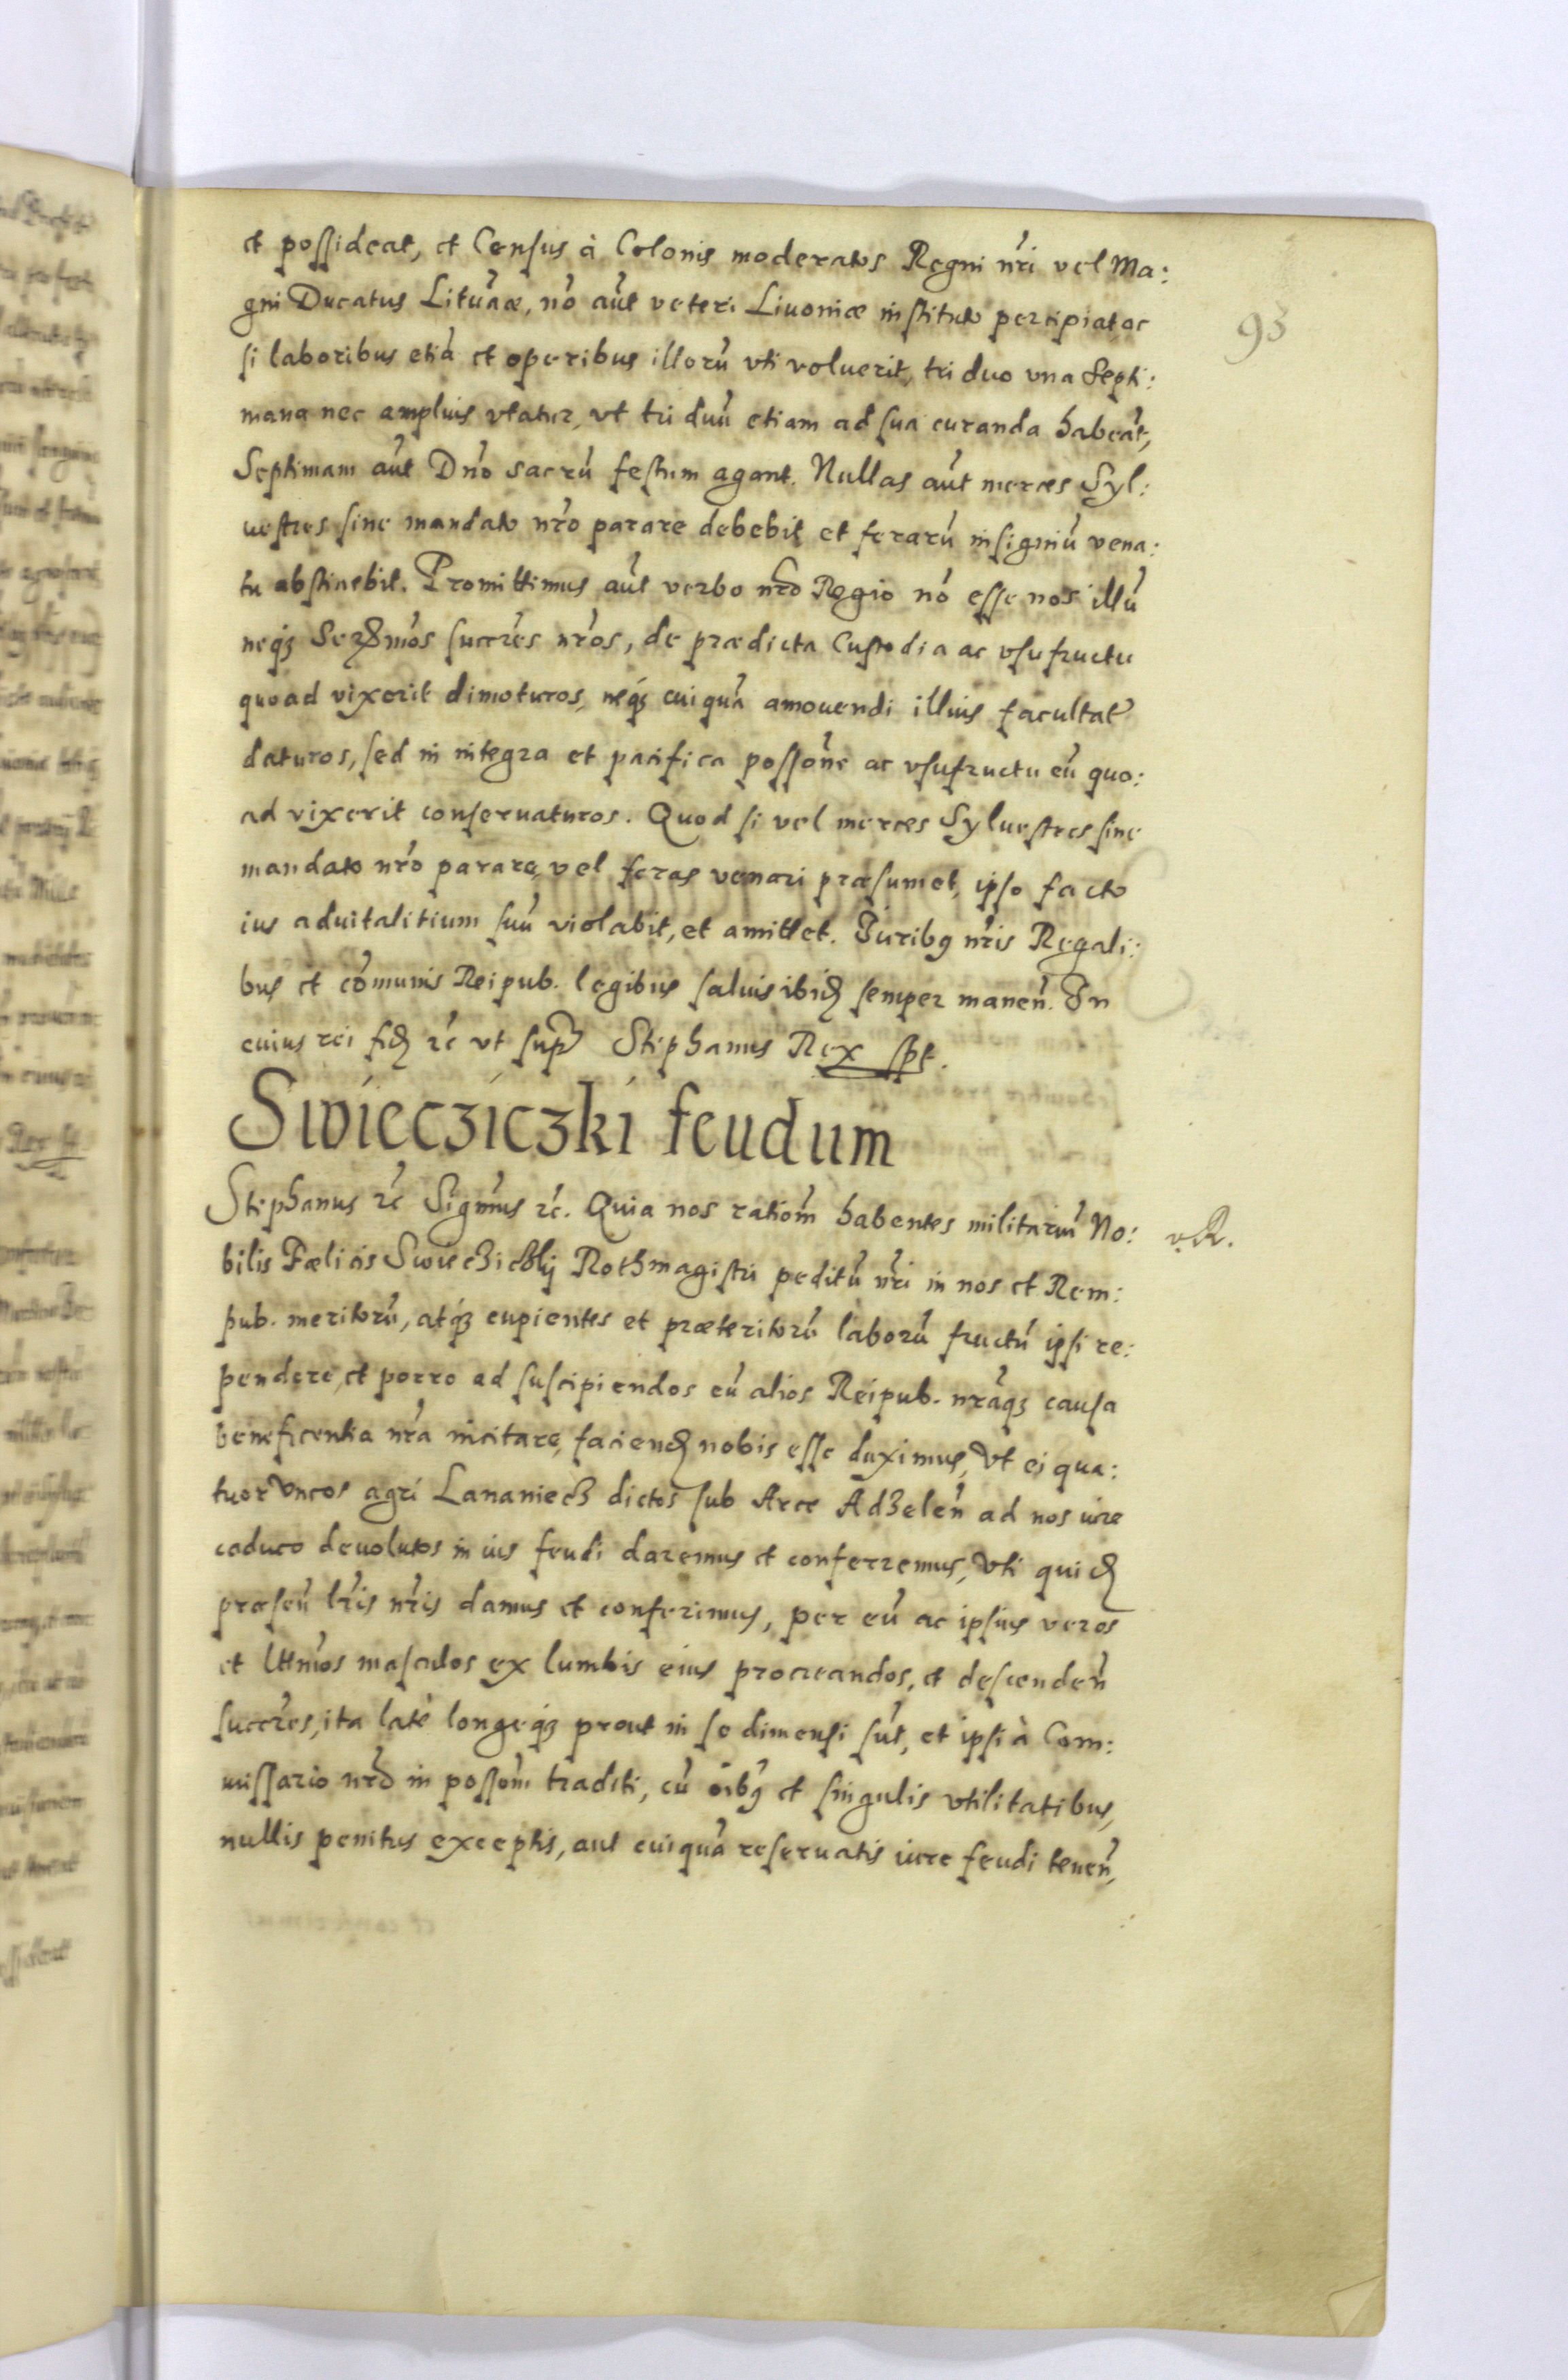 et possideat, et Census à Colonis moderatos Regni nr̃i vel Ma:
gni Ducatus Lituãæ, nõ aũt veteri Liuoniæ instituto percipiat, ac
si laboribus etiã et operibus illorũ vti voluerit, tri duo vna Septi:
mana nec amplius vtatur, vt tri duũ etiam ad sua curanda habeãt,
Septimam aũt Dño sacrũ festum agant. Nullas aũt merces Syl:
uestres sine mandato nr̃o parare debebit et ferarũ insigniũ vena:
tu abstinebit. Promittimus aũt verbo nr̃o Regio nõ esse nos illũ
neqꝫ Serẽmos succr̃es nr̃os, de prædicta Custodia ac vsufructu
quoad vixerit dimoturos, neqꝫ cuiquã amouendi illius facultat̃
daturos, sed in integra et pacifica possõne ac vsufructu eũ quo:
ad vixerit conseruaturos. Quod si vel merces Syluestres sine
mandato nr̃o parare, vel feras venari præsumet, ipso facto
ius aduitalitium suũ violabit, et amittet. Iuribꝯ nr̃is Regali:
bus et cõmunis Reipub. legibus saluis ibid̃ semper maneñ. In
cuius rei fid̃ zc̃ vt supr̃ Stephanus Rex spt.
Swiecziczki feudum
Stephanus zc̃ Sigñus zc̃. Quia nos ratiom̃ habentes militariũ No:
v. R.
bilis Fælicis Swiecziczkij Rothmagistri peditũ nr̃i in nos et Rem:
pub. meritorũ, atqꝫ cupientes et præteritorũ laborũ fructũ ipsi re:
pendere, et porro ad suscipiendos eũ alios Reipub. nr̃aqꝫ causa
beneficentia nr̃a incitare, faciend̃ nobis esse duximus, Vt ei qua:
tuor Vncos agri Lananiecz dictos sub Arce Adzeleñ ad nos iure
caduco deuolutos in ius feudi daremus et conferremus, Vti quid̃
præseñ lr̃is nr̃is damus et conferimus, per eũ ac ipsius veros
et lttm̃os masculos ex lumbis eius procreandos, et descendeñ
succr̃es, ita latè longeqꝫ prout in se dimensi sũt, et ipsi à Com:
missario nr̃o in possom̃ traditi, cũ oĩbꝯ et singulis vtilitatibus,
nullis penitus exceptis, aut cuiquã reseruatis iure feudi teneñ,
93